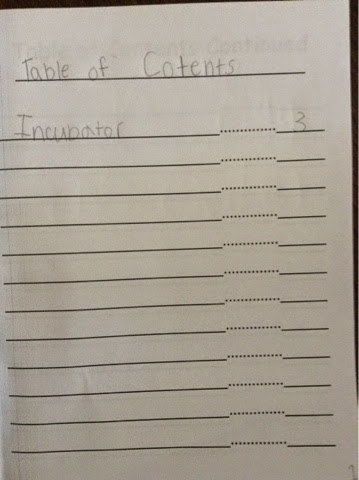 Table of Cotents
Incubator ............ 3